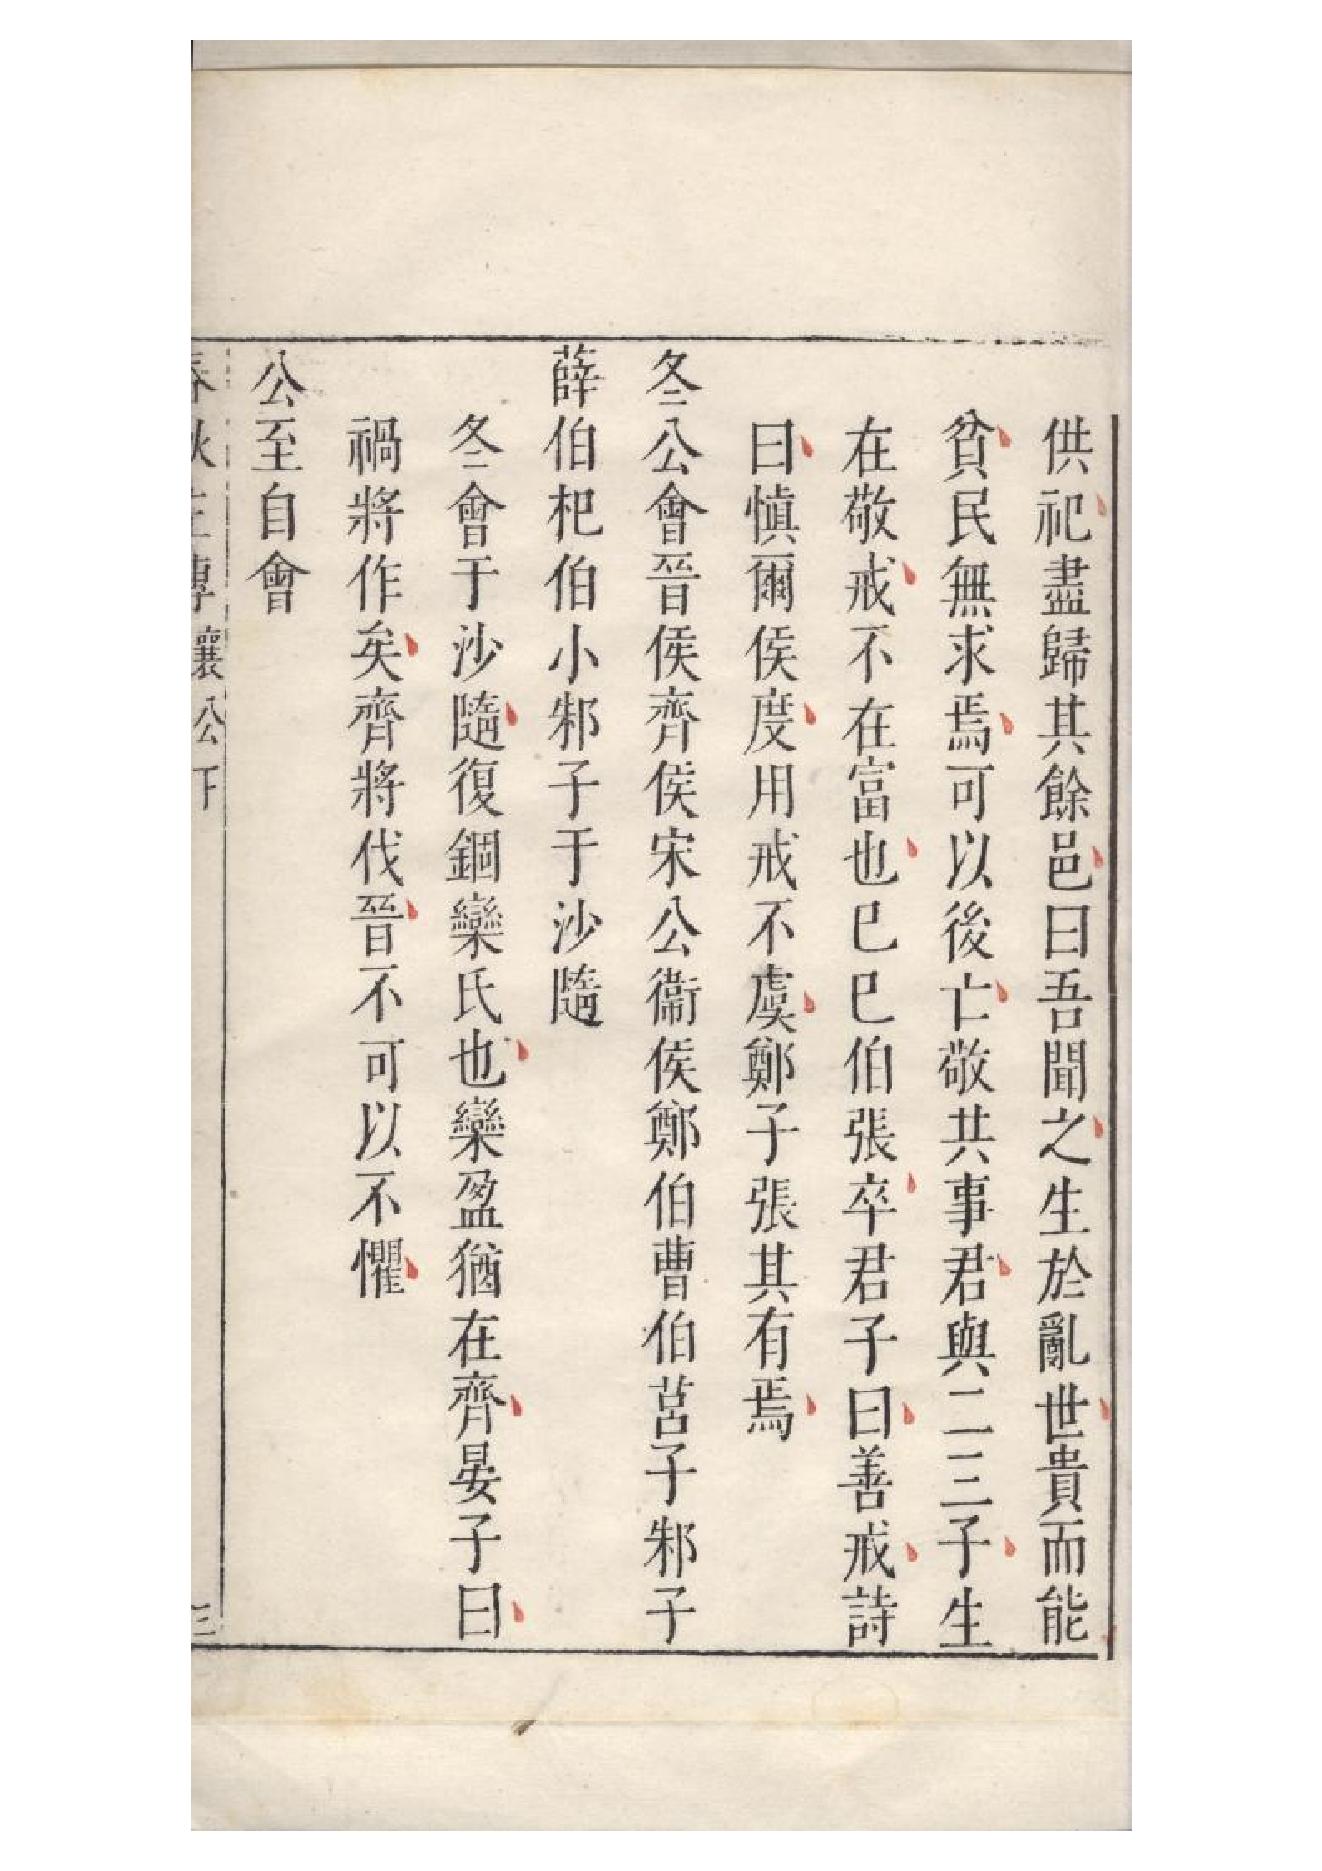 供祀盡歸其餘邑曰吾聞之生於亂世貴而能
貧民無求焉可以後亡敬共事君與二三子生
在敬戒不在富也已巳伯張卒君子曰善戒詩
曰慎爾侯度用戒不虞鄭子張其有焉
冬公會晉侯齊侯宋公衞侯鄭伯曹伯莒子邾子
薛伯杞伯小邾子于沙隨
冬會于沙隨復錮欒氏也欒盈猶在齊晏子曰
禍將作矣齊將伐晉不可以不懼
公至自會
春秋左傳 襄公下 三